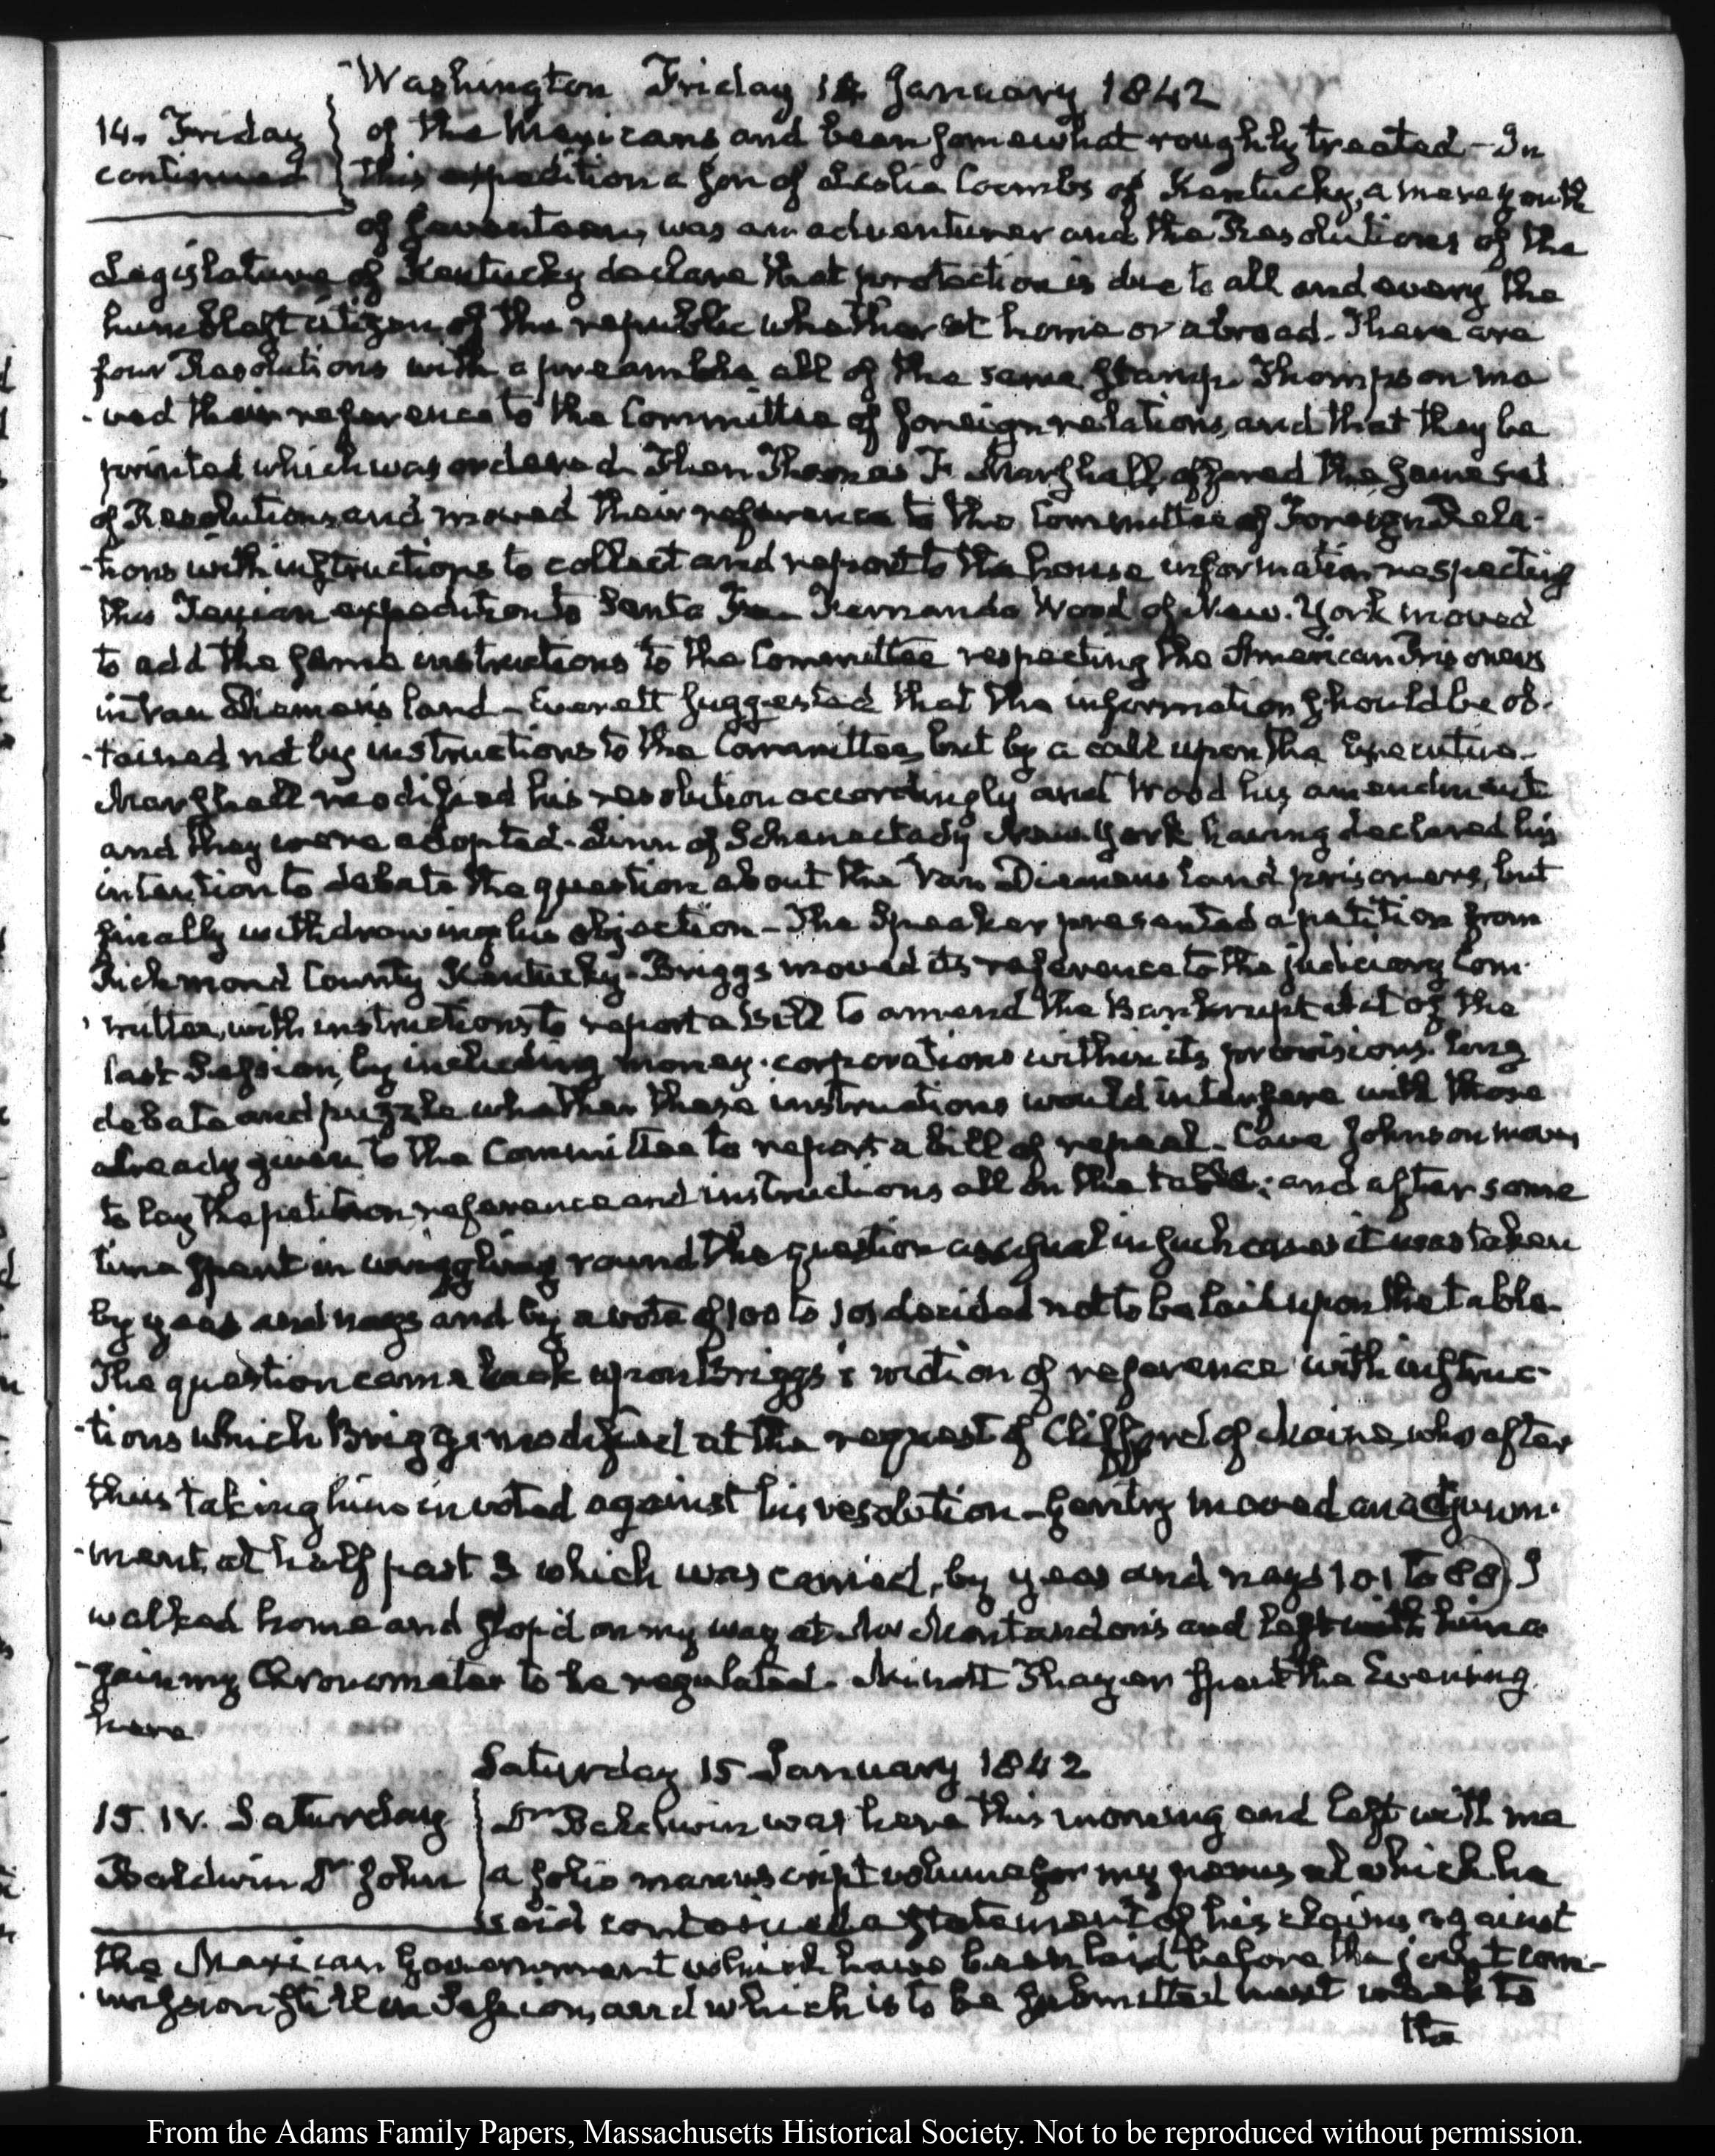 Washington Friday 14 January 1842
14. Friday
continued
of the Mexicans and been somewhat roughly treated – In
this expedition a son of Leslie Coombs of Kentucky, a mere youth
of seventeen, was an adventurer and the Resolutions of the
Legislature of Kentucky declare that protection is due to all and every the
humblest citizen of the republic whether at home or abroad. There are
four Resolutions with a preamble all of the same stamp. Thompson mo
-ved their reference to the Committee of foreign relations, and that they be
printed which was ordered. Then Thomas F. Marshall offered the same set
of Resolutions and moved their reference to the Committee of Foreign Rela-
-tions with instructions to collect and report to the house information respecting
this Texian expedition to Santa Fe – Fernando Wood of New-York moved
to add the same instructions to the Committee respecting the American Prisoners
in Van Diemen's land – Everett suggested that the information should be ob-
-tained not by instructions to the Committee, but by a call upon the Executive –
Marshall modified his resolution accordingly and Wood his amendment
and they were adopted. Linn of Schenectady New-York having declared his
intention to debate the question about the Van Diemens land prisoners, but
finally withdrawing his objection – The Speaker presented a petition from
Richmond County Kentucky – Briggs moved its reference to the judiciary Com-
-mittee, with instructions to report a bill to amend the Bankrupt Act of the
last Session, by including money-corporations within its provisions. Long
debate and puzzle whether these instructions would interfere with those
already given to the Committee to report a bill of repeal – Cave Johnson moves
to lay the petition, reference and instructions all on the table; and after some
time spent in wriggling round the question as usual in such cases it was taken
by yeas and nays and by a vote of 100 to 101 decided not to be laid upon the table.
The question came back upon Briggs's motion of reference with instruc-
-tions which Briggs modified at the request of Clifford of Maine, who after
thus taking him in voted against his resolution – Gentry moved an adjourn-
-ment, at half past 3 which was carried, by yeas and nays 101 to 88) I
walked home and stop'd on my way at Mr Montandon's and left with him a
-gain my Chronometer to be regulated. Minott Thayer spent the Evening
here
Saturday 15 January 1842
15. IV. Saturday
Baldwin Dr John
Dr Baldwin was here this morning and left with me
a folio manuscript volume for my perusal which he
said contained a statement of his claims against
the Mexican Government which have been laid before the joint com-
-mission still in Session, and which is to be submitted next week to
the
From the Adams Family Papers, Massachusetts Historical Society. Not to be reproduced without permission.